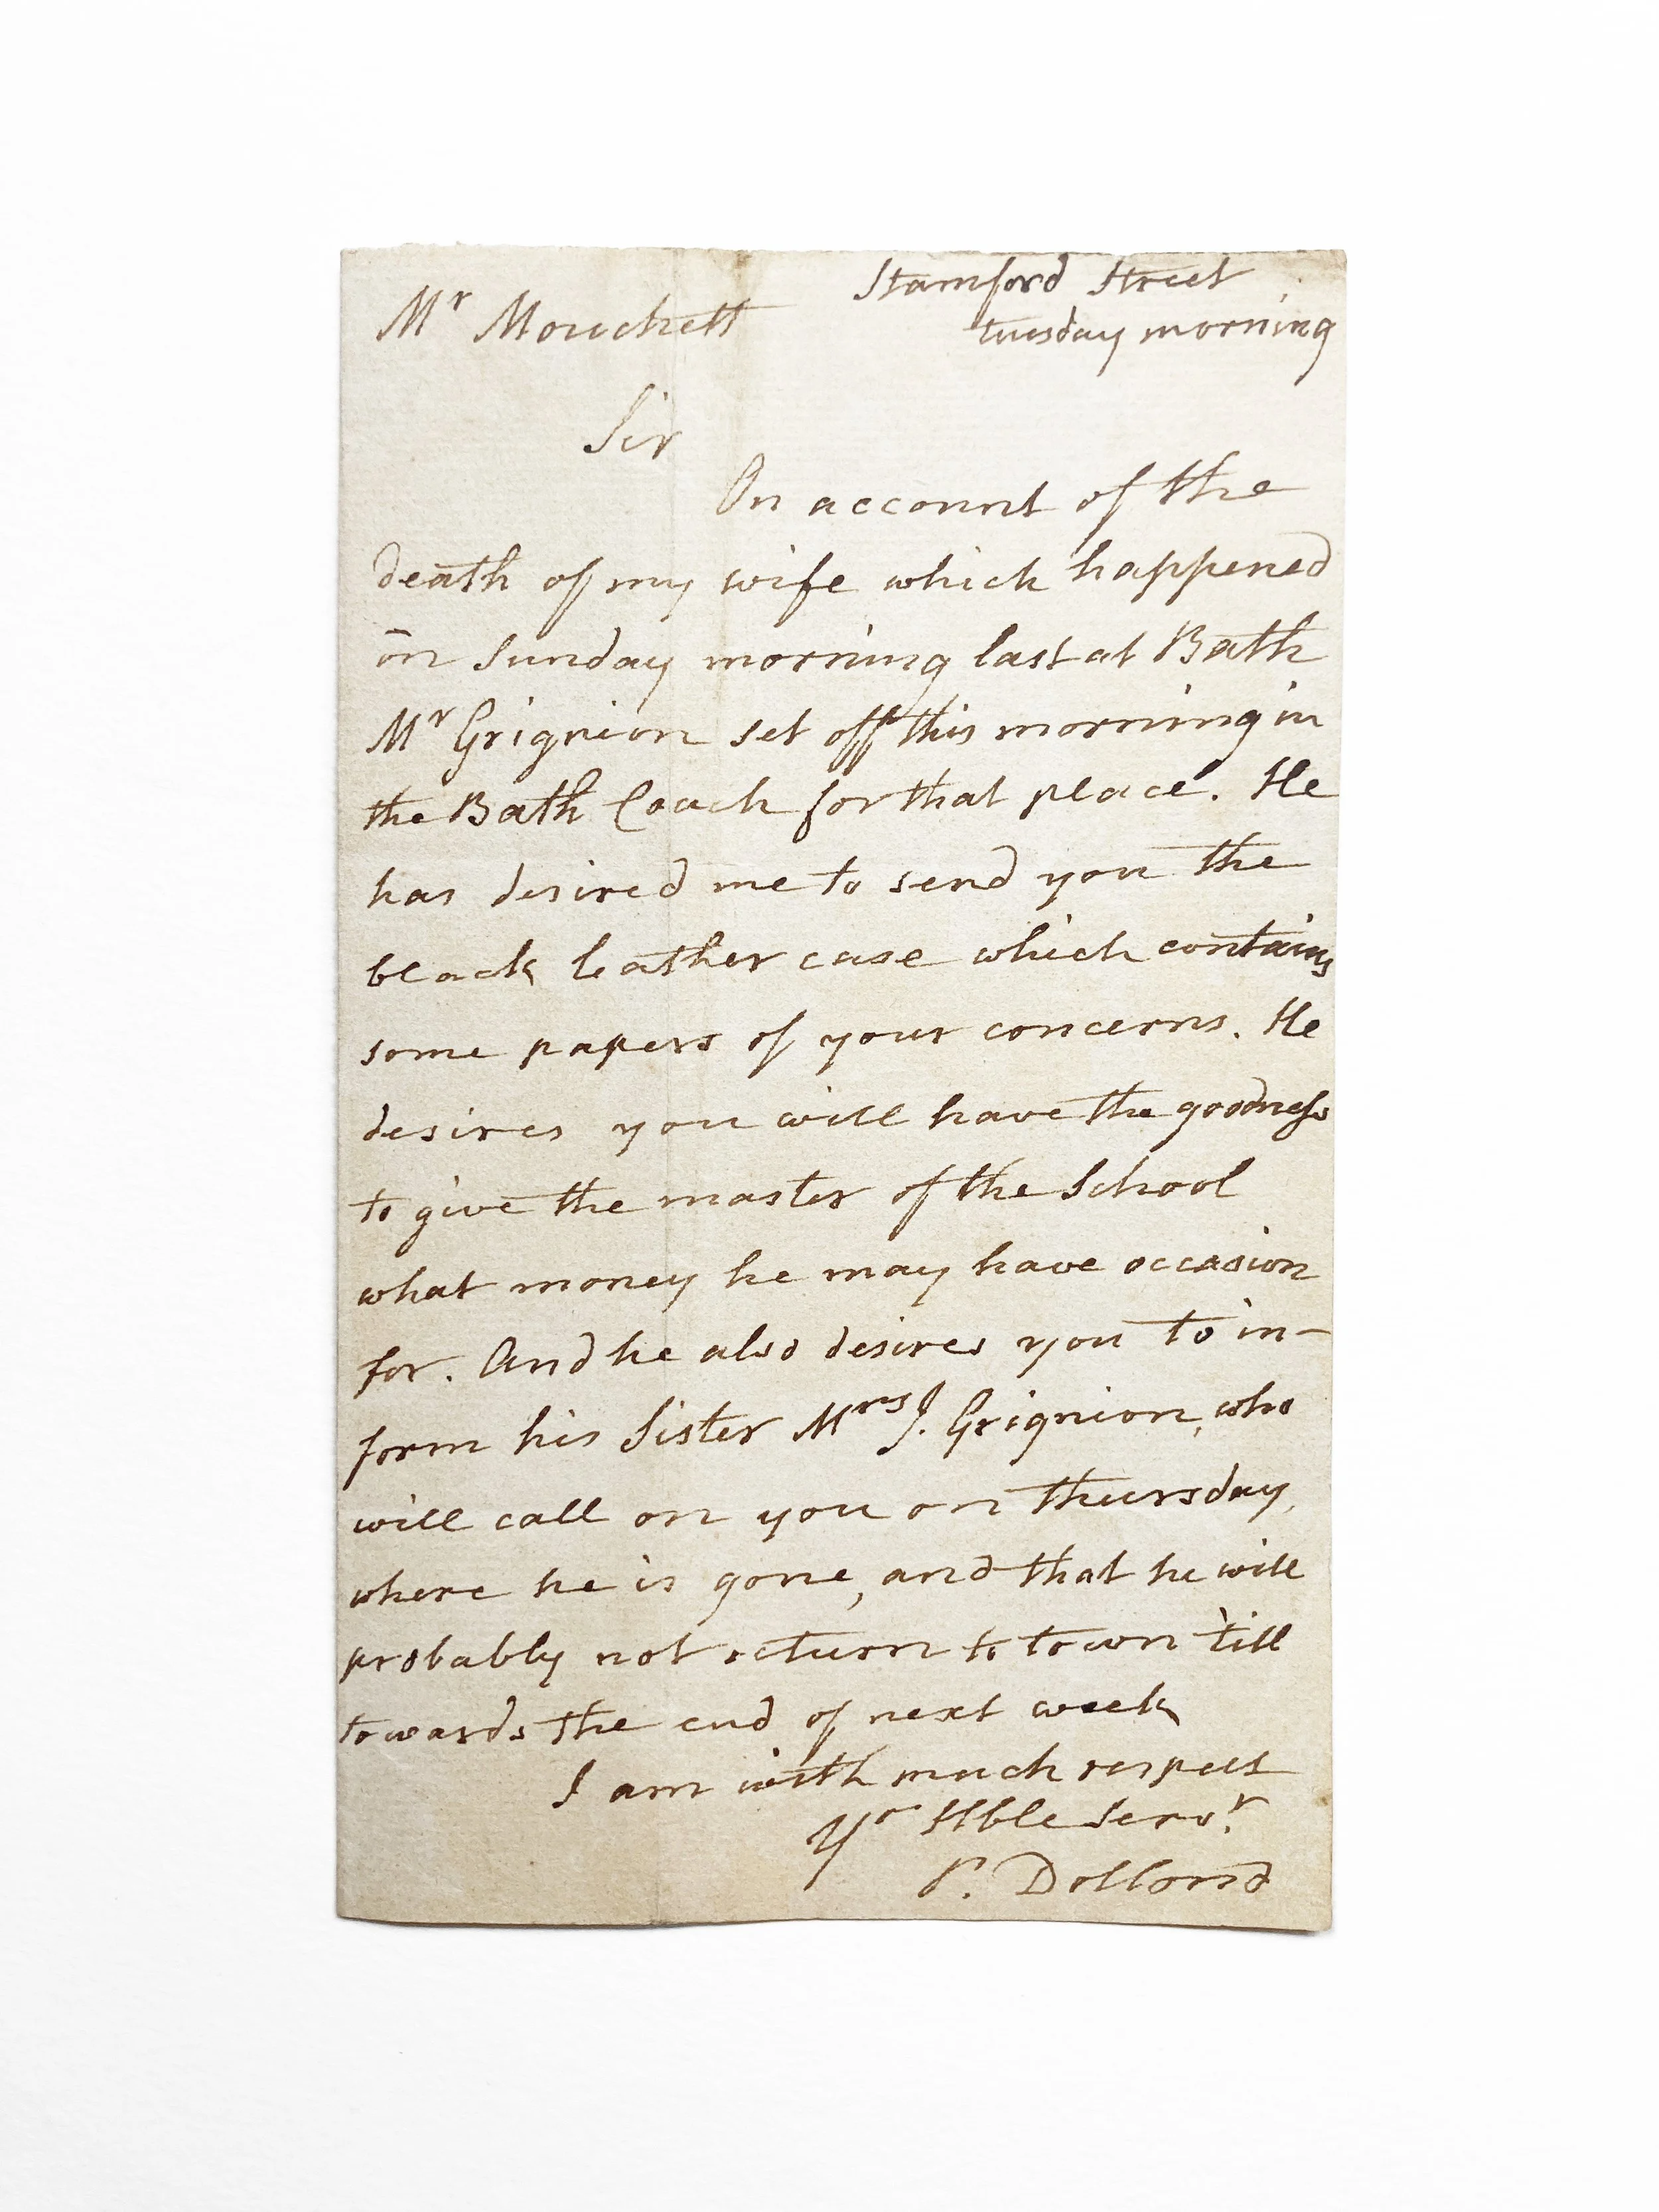 Stamford Street
Mr Mouchett
tuesday morning
Sir
On account of the
death of my wife which happened
on Sunday morning last at Bath
Mr Grignion set off this morning in
the Bath Coach for that place. He
has desired me to send you the
black leather case which contains
some papers of your concerns. He
desires you will have the goodness
to give the master of the School
what money he may have occasion
for. And he also desires you to in-
form his Sister Mrs J. Grignion, who
will call on you on Thursday,
where he is gone, and that he will
probably not return to town 'till
towards the end of next week
I am with much respect
Yr Hble Servr.
P. Dollond